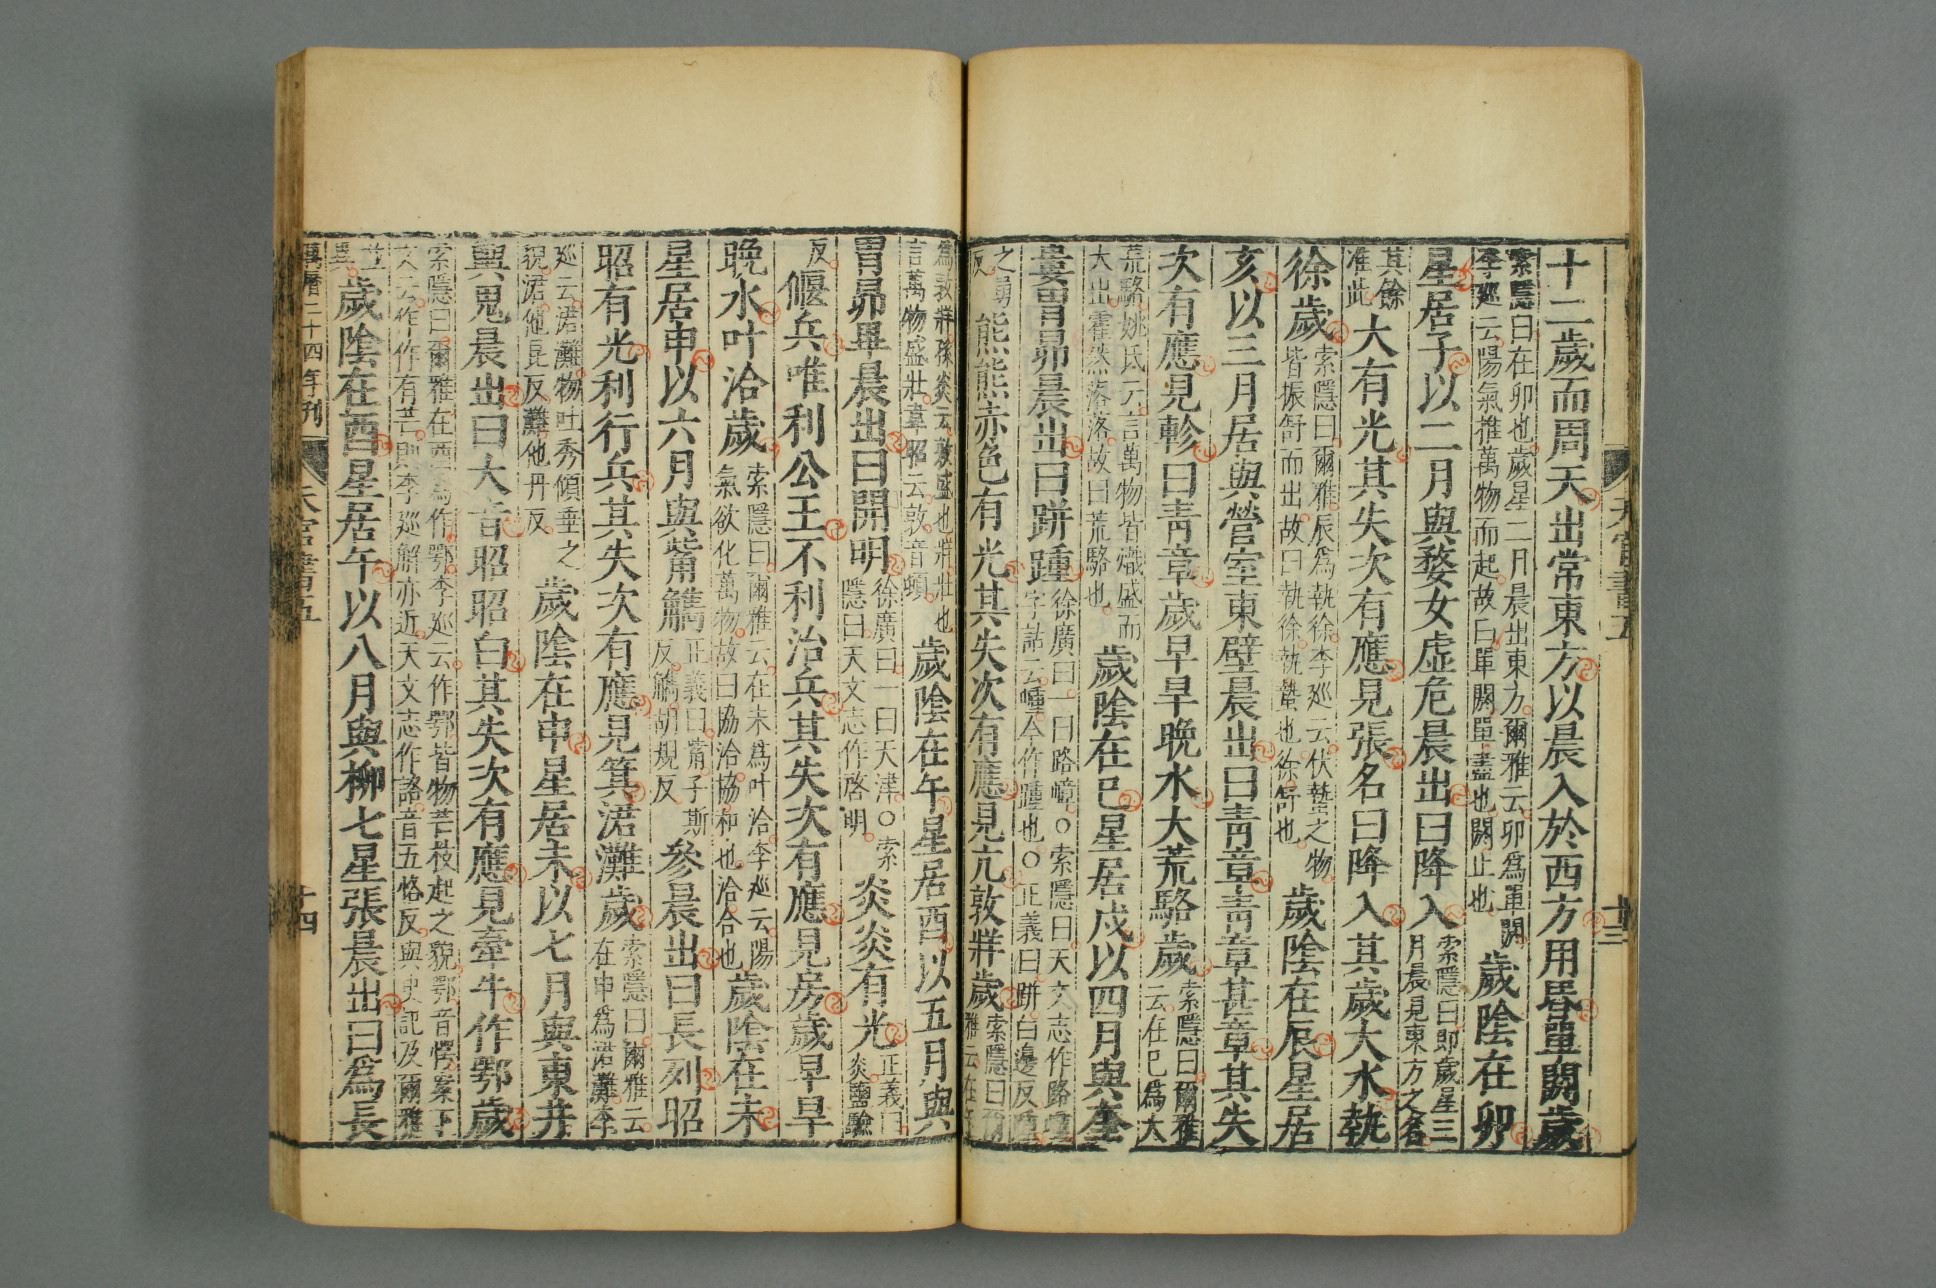 天官書五 十三
十二歲而周天出常東方以晨入於西方用昬單閼歲
索隱曰在卯也歲星二月晨出東方爾雅云卯爲單閼
李廵云陽氣推萬物而起故曰單閼單盡也閼止也
歲陰在卯
星居子以二月與婺女虛危晨出曰降入
索隱曰即歲星三
月晨見東方之名
其餘
准此
大有光其失次有應見張名曰降入其歲大水執
徐歲
索隱曰爾雅辰爲執徐李廵云伏蟄之物
皆振舒而出故曰執徐執蟄也徐舒也
歲陰在辰星居
亥以三月居與營室東壁晨出曰青章青章甚章其失
次有應見軫曰青章歲早旱晩水大荒駱歲
索隱曰爾雅
云在巳爲大
荒駱姚氏云言萬物皆熾盛而
大出霍然落落故曰荒駱也
歲陰在巳星居戌以四月與奎
婁胃昴晨出曰跰踵
徐廣曰一曰路嶂○索隱曰天文志作路
字詁云㠉今作踵也○正義曰跰白邊反踵
之勇
反
熊熊赤色有光其失次有應見亢敦牂歲
索隱曰爾
雅云在午
爲敦牂孫炎云敦盛也牂壯也
言萬物盛壯韋昭云敦音頓
歲陰在午星居酉以五月與
胃昴畢晨出曰開明
徐廣曰一曰天津○索
隱曰天文志作啓明
炎炎有光
正義曰
炎鹽驗
反
偃兵唯利公王不利治兵其失次有應見房歲早旱
晩水叶洽歲
索隱曰爾雅云在未爲叶洽李廵云陽
氣欲化萬物故曰協洽協和也洽合也
歲陰在未
星居申以六月與觜觿
正義曰觜子斯
反觿胡規反
參晨出曰長列昭
昭有光利行兵其失次有應見箕涒灘歲
索隱曰爾雅云
在申爲涒灘李
廵云涒灘物吐秀傾垂之
貌涒他昆反灘他丹反
歲陰在申星居未以七月與東井
輿鬼晨出曰大音昭昭白其失次有應見牽牛作鄂歲
索隱曰爾雅在酉爲作鄂李廵云作鄂皆物芒枝起之貌鄂音愕案下
文云作作有芒則李廵解亦近天文志作詻音五恪反與史記及爾雅
並
異
歲陰在酉星居午以八月與柳七星張晨出曰爲長
萬曆二十四年刊 天官書五 十四